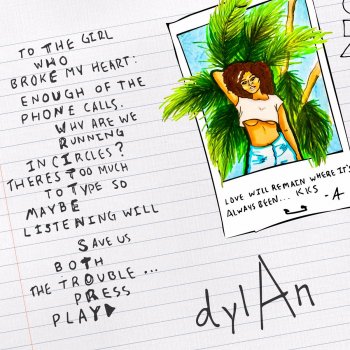 TO THE GIRL
WHO
BROKE MY HEART:
ENOUGH OF THE
PHONE CALLS.
WHY ARE WE
RUNNING
IN CIRCLES?
THERES TOO MUCH
TO TYPE SO
MAYBE
LISTENING WILL
SAVE US
BOTH
THE TROUBLE...
PRESS
PLAY
LOVE WILL REMAIN WHERE IT'S
ALWAYS BEEN... KKS
-A
dylAn